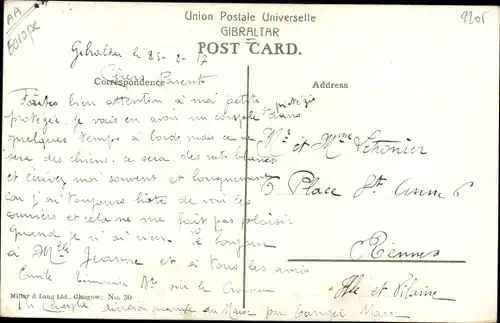 AA
Europe
2205
Union Postale Universelle
GIBRALTAR
POST CARD.
Gibraltar le 25-2-17
Correspondence
Address
Chers Parents
Faites bien attention à ma petite
protégée. Je vais en avoir un couple
quelques temps à bord mais ce ne
sera des chiens. ce sera des rats blancs
et écrivez moi souvent et longuement
car j'ai toujours hâte de voir les
courriers et cela ne me fait pas plaisir
Quand je n'ai rien. Le bonjour
à Mlle Jeanne et à tous les amis
Emile
sur le
Mr et Mme Letonnier
Place Ste Anne 6
Rennes
Ille et Vilaine
Millar & Lang Ltd., Glasgow. No. 30
division navale du Maroc par Tanger Maroc